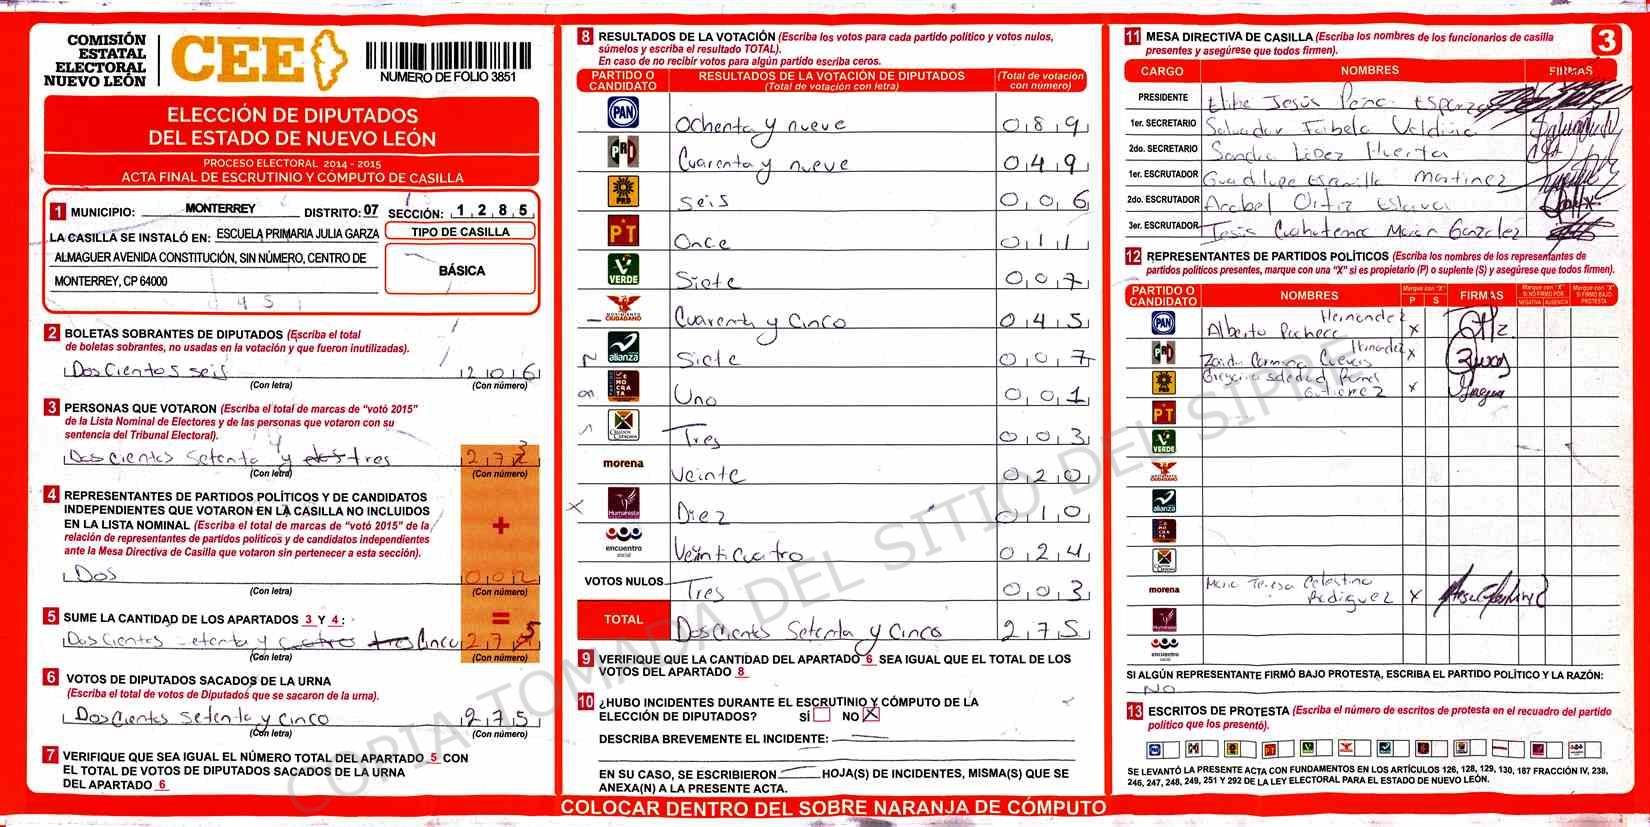 COMISIÓN
ESTATAL
ELECTORAL
NUEVO LEÓN
CEE
NUMERO DE FOLIO 3851
ELECCIÓN DE DIPUTADOS
DEL ESTADO DE NUEVO LEÓN
PROCESO ELECTORAL 2014 - 2015
ACTA FINAL DE ESCRUTINIO Y CÓMPUTO DE CASILLA
1 MUNICIPIO: MONTERREY DISTRITO: 07 SECCIÓN: 1 2 8 5
LA CASILLA SE INSTALÓ EN: ESCUELA PRIMARIA JULIA GARZA
ALMAGUER AVENIDA CONSTITUCIÓN, SIN NÚMERO, CENTRO DE
MONTERREY, CP 64000
TIPO DE CASILLA
BÁSICA
2 BOLETAS SOBRANTES DE DIPUTADOS (Escriba el total
de boletas sobrantes, no usadas en la votación y que fueron inutilizadas).
Dos Cientos seis 206
(Con letra) (Con número)
3 PERSONAS QUE VOTARON (Escriba el total de marcas de "votó 2015"
de la Lista Nominal de Electores y de las personas que votaron con su
sentencia del Tribunal Electoral).
Dos cientos Setenta y tres 273
(Con letra) (Con número)
4 REPRESENTANTES DE PARTIDOS POLÍTICOS Y DE CANDIDATOS
INDEPENDIENTES QUE VOTARON EN LA CASILLA NO INCLUIDOS
EN LA LISTA NOMINAL (Escriba el total de marcas de "votó 2015" de la
relación de representantes de partidos políticos y de candidatos independientes
ante la Mesa Directiva de Casilla que votaron sin pertenecer a esta sección).
+
Dos 002
(Con letra) (Con número)
5 SUME LA CANTIDAD DE LOS APARTADOS 3 Y 4: =
Dos Cientos setenta y cuatro tres Cinco 275
(Con letra) (Con número)
6 VOTOS DE DIPUTADOS SACADOS DE LA URNA
(Escriba el total de votos de Diputados que se sacaron de la urna).
Dos Cientos Setenta y cinco 275
(Con letra) (Con número)
7 VERIFIQUE QUE SEA IGUAL EL NÚMERO TOTAL DEL APARTADO 5 CON
EL TOTAL DE VOTOS DE DIPUTADOS SACADOS DE LA URNA
DEL APARTADO 6
8 RESULTADOS DE LA VOTACIÓN (Escriba los votos para cada partido político y votos nulos,
súmelos y escriba el resultado TOTAL).
En caso de no recibir votos para algún partido escriba ceros.
PARTIDO O CANDIDATO RESULTADOS DE LA VOTACIÓN DE DIPUTADOS (Total de votación con letra) (Total de votación con número)
PAN Ochenta y nueve 089
PRI Cuarenta y nueve 049
PRD Seis 006
PT Once 011
VERDE Siete 007
MOVIMIENTO CIUDADANO Cuarenta y Cinco 045
alianza Siete 007
DEMOCRATA Uno 001
CRUZADA CIUDADANA Tres 003
morena Veinte 020
Humanista Diez 010
encuentro social Veinticuatro 024
VOTOS NULOS Tres 003
TOTAL Dos Cientos Setenta y Cinco 275
9 VERIFIQUE QUE LA CANTIDAD DEL APARTADO 6 SEA IGUAL QUE EL TOTAL DE LOS
VOTOS DEL APARTADO 8
10 ¿HUBO INCIDENTES DURANTE EL ESCRUTINIO Y CÓMPUTO DE LA
ELECCIÓN DE DIPUTADOS? SÍ NO X
DESCRIBA BREVEMENTE EL INCIDENTE:
EN SU CASO, SE ESCRIBIERON HOJA(S) DE INCIDENTES, MISMA(S) QUE SE
ANEXA(N) A LA PRESENTE ACTA.
COLOCAR DENTRO DEL SOBRE NARANJA DE CÓMPUTO
11 MESA DIRECTIVA DE CASILLA (Escriba los nombres de los funcionarios de casilla
presentes y asegúrese que todos firmen).
3
CARGO NOMBRES FIRMAS
PRESIDENTE Jesús Pena Esparza
1er. SECRETARIO Salvador Faibela
2do. SECRETARIO Sandra López Huerta
1er. ESCRUTADOR Guadalupe Martinez
2do. ESCRUTADOR Ortiz
3er. ESCRUTADOR Jesús Gonzalez
12 REPRESENTANTES DE PARTIDOS POLÍTICOS (Escriba los nombres de los representantes de
partidos políticos presentes, marque con una "X" si es propietario (P) o suplente (S) y asegúrese que todos firmen).
PARTIDO O CANDIDATO NOMBRES Marque con "X" P S FIRMAS Marque con "X" SI NO FIRMÓ POR NEGATIVA AUSENCIA Marque con "X" SI FIRMÓ BAJO PROTESTA
PAN Alberto Pacheco Hernandez X
PRI Cuevas Hernandez X
PRD Soledad Gutierrez X
PT
VERDE
alianza
morena Maria Teresa Celestino Rodriguez X
Humanista
encuentro social
SI ALGÚN REPRESENTANTE FIRMÓ BAJO PROTESTA, ESCRIBA EL PARTIDO POLÍTICO Y LA RAZÓN:
NO
13 ESCRITOS DE PROTESTA (Escriba el número de escritos de protesta en el recuadro del partido
político que los presentó).
SE LEVANTÓ LA PRESENTE ACTA CON FUNDAMENTOS EN LOS ARTÍCULOS 126, 128, 129, 130, 187 FRACCIÓN IV, 238,
246, 247, 248, 249, 251 Y 292 DE LA LEY ELECTORAL PARA EL ESTADO DE NUEVO LEÓN.
COPIA TOMADA DEL SITIO DEL SIPRE